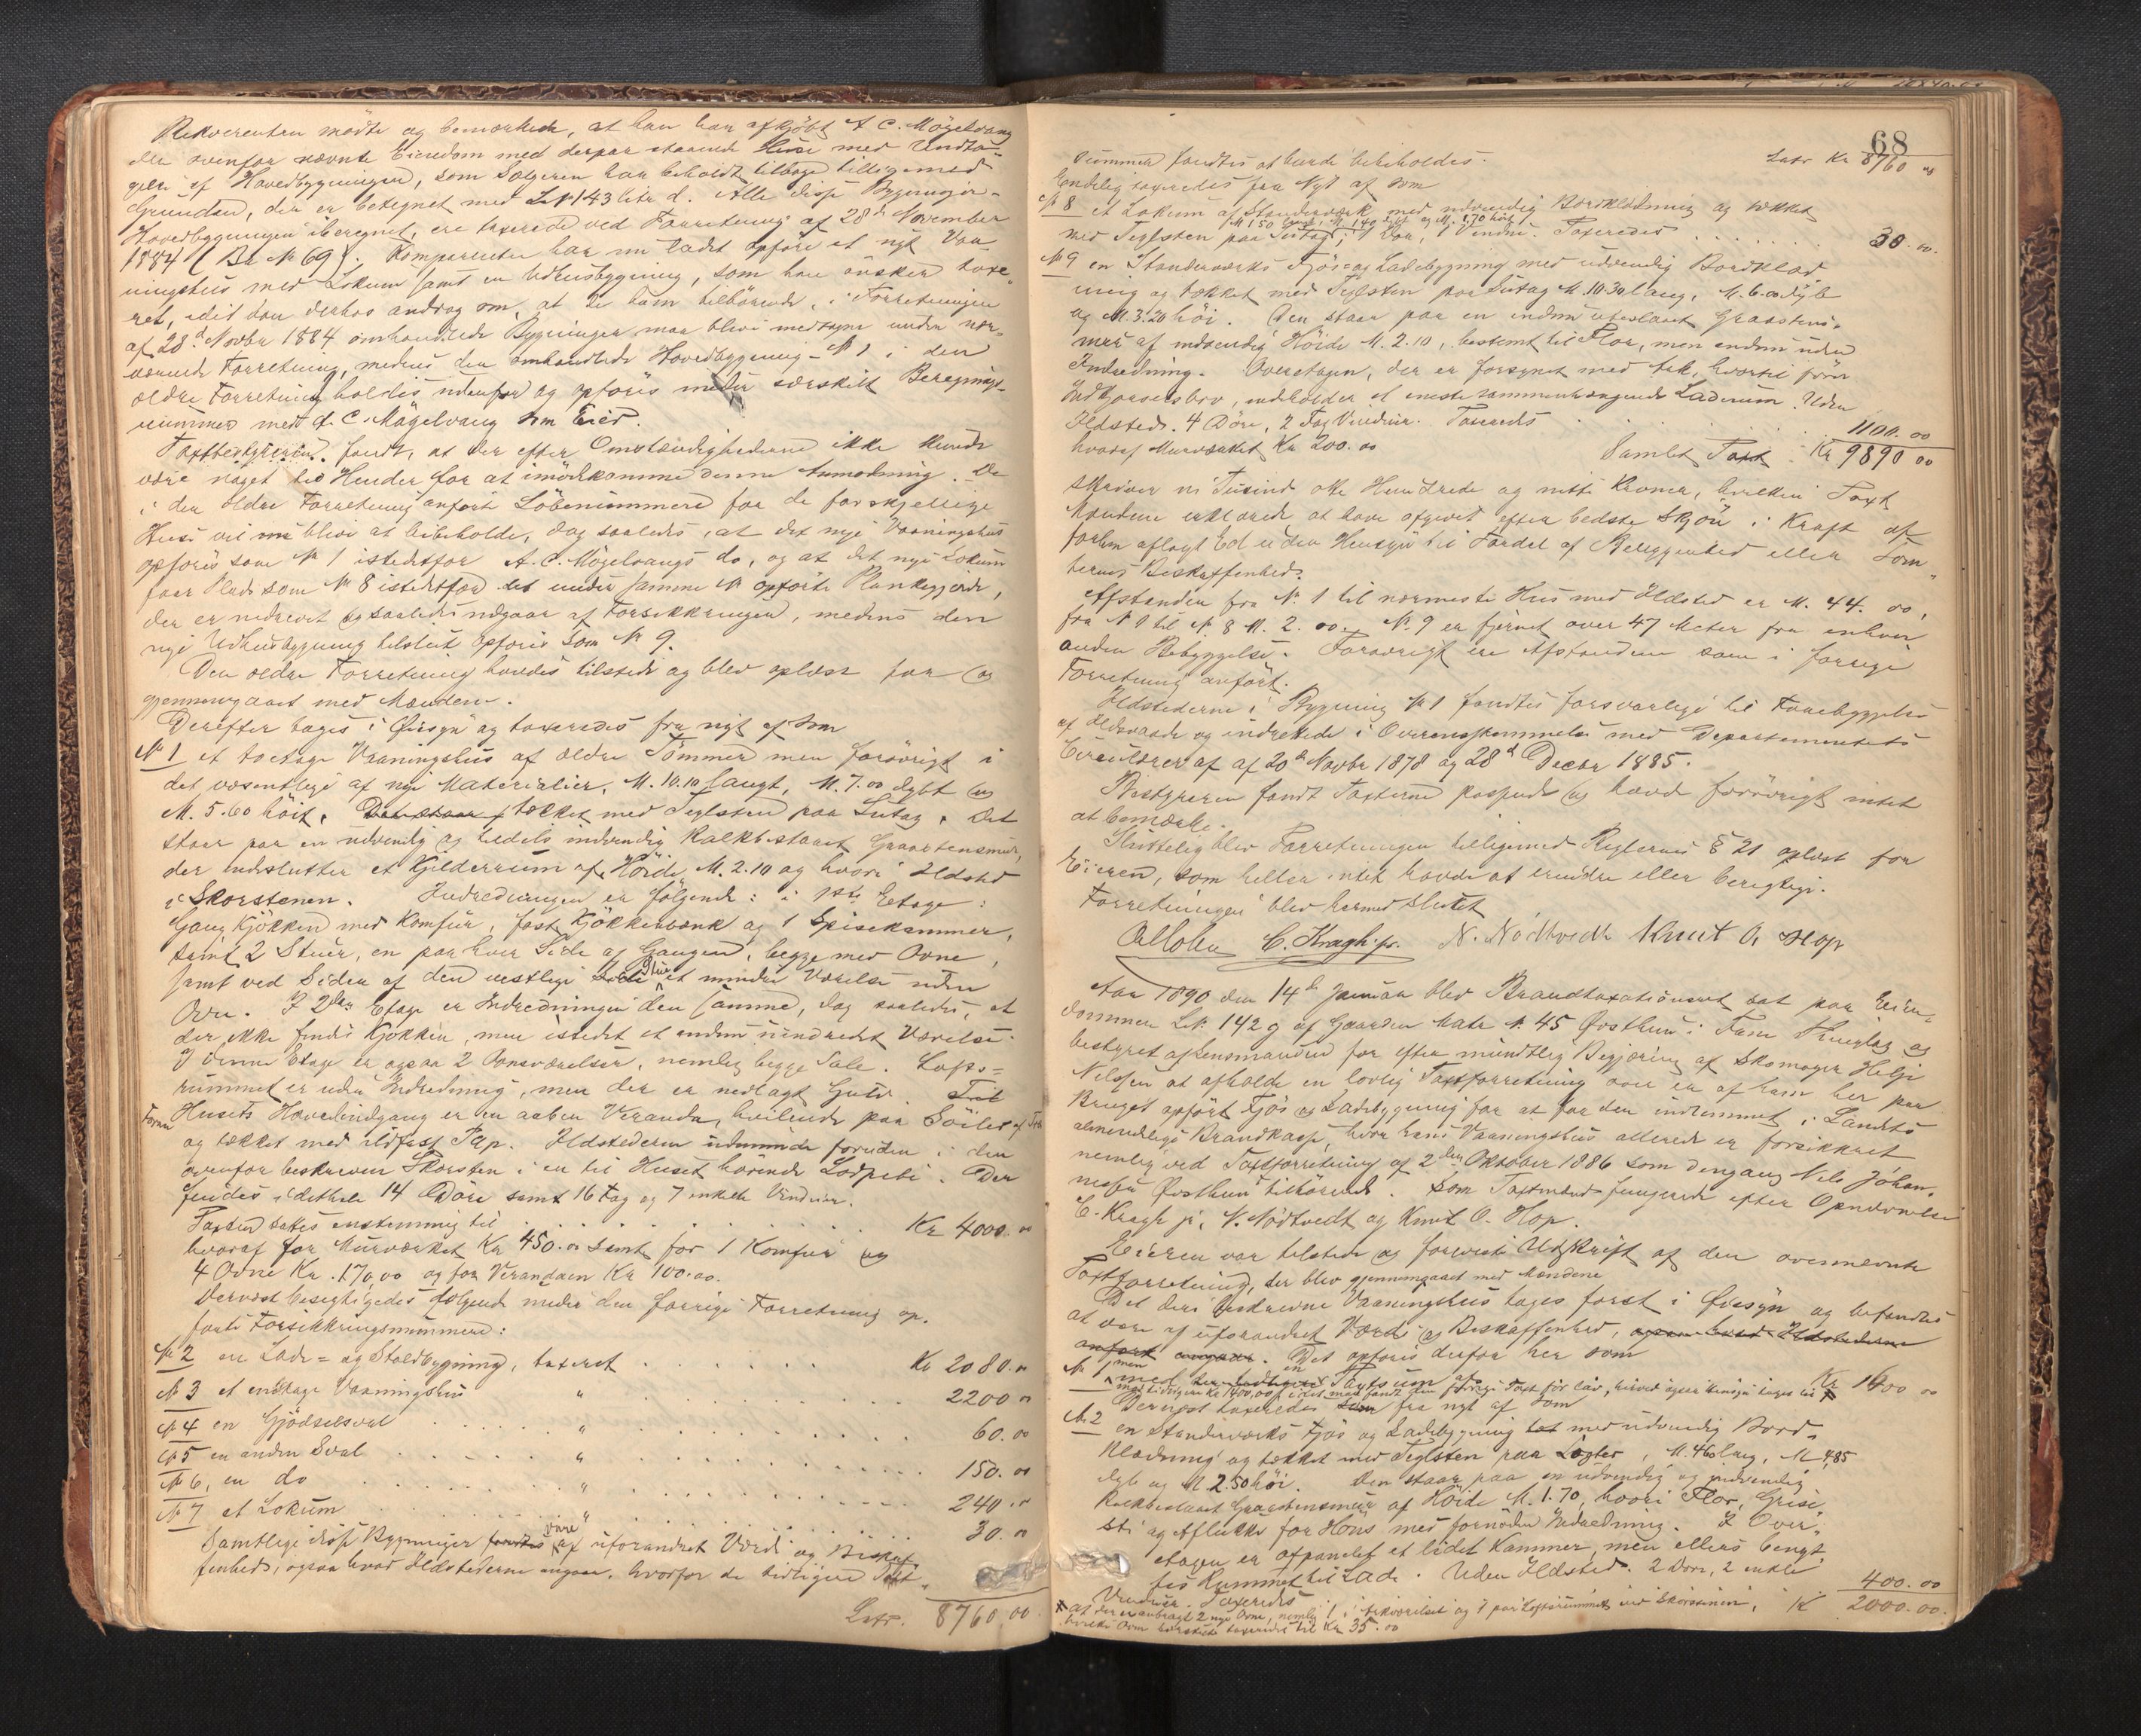 Rekvirenten mødte og bemærkede, at han har afkjøbt A C. Mögelvang
den ovenfor nævnte Eiendom med derpaa staaende Huse med Undta-
gelse af Hovedbygningen, som Sælgeren har beholdt tilbage tilligemed
Grunden, der er betegnet med L.N. 143 litr d. Alle disse Bygninger
Hovedbygningen iberegnet, ere taxerede ved Forretning af 28de November
1884 (Br No 69). Komparenten har nu ladet opføre et nyt Vaa-
ningshus med Lokum samt en Udhusbygning, som han ønsker taxe-
ret, idet han derhos androg om, at de ham tilhørende, i Forretningen
af 28d Novbr 1884 omhandlede Bygninger maa blive medtagne under nær-
værende Forretning, medens den omhandlede Hovedbygning No 1 i den
ældre Forretning holdes udenfor og opføres under særskilt Beregnings-
nummer med A. C Mögelvang som Eier.
Taxtbestyreren fandt, at der efter Omstændighederne ikke kunde
være noget til Hinder for at imødekomme denne Anmodning. De
i den ældre Forretning anførte Löbenummere for de forskjellige
Huse vil blive at bibeholde, dog saaledes, at det nye Vaaningshus
opføres som No 1 istedetfor A. C. Mögelvangs do, og at det nye Lokum
faar Plads som No 8 istedetfor det under samme No opførte Plankegjerde,
der er nedrevet og saaledes udgaar af Forsikkringen, medens den
nye Udhusbygning tilsidst opføres som No 9.
Den ældre Forretning havdes tilstede og blev oplæst for og
gjennemgaaet med Mændene.
Derefter toges i Øiesyn og taxeredes fra nyt af som
No 1 et toetages Vaaningshus af ældre Tömmer men forøvrigt i
det væsentlige af nye Materialier, M. 10.10 langt, M. 7.00 dybt og
M. 5.60 høit. Det staar tækket med Teglsten paa Sutag. Det
staar paa en udvendig og tildels indvendig Kalkbestaaet Graastensmur,
der indslutter et Kjelderrum af Höide M. 2.10 og hvori Ildsted
i Skorstenen. Indredningen er følgende: i 1ste Etage:
Gang Kjøkken med Komfur, fast Kjøkkenbænk og 1 Spisekammer,
samt 2 Stuer, en paa hver Side af Gangen, begge med Ovne,
samt ved Siden af den vestlige Stue et mindre Værelse uden
Ovn. I 2den Etage er Indredningen den samme, dog saaledes, at
der ikke findes Kjøkken, men istedet et andet uindredet Værelse.
I denne Etage er ogsaa 2 Ovnsværelser, nemlig begge Sale. Lofts-
rummet er uden Indredning, men der er nedlagt Gulv.
Foran Husets Hovedindgang er en aaben Veranda, hvilende paa Söiler af Træ
og tækket med ildfast Pap. Ildstederne udmunde foruden i den
ovenfor beskrevne Skorsten i en til Huset hörende Lodpibe. Der
findes i dethele 14 Døre samt 16 Fag og 7 enkelte Vinduer.
Taxten sattes enstemmig til . . . . . . . . . . Kr 4000.00
hvoraf for Murværket Kr 450.00 samt for 1 Komfur og
4 Ovne Kr. 170,00 og for Verandaen Kr 100.00.
Dernæst besigtigedes følgende under den forrige Forretning op-
førte Forsikkringsnummere:
No 2 en Lade- og Staldbygning, taxeret . . . . . . Kr 2080.00
No 3 et enetages Vaaningshus " . . . . . . 2200 00
No 4 en Gjödselsval " . . . . . . 60.00
No 5 en anden Sval " . . . . . . 150.00
No 6, en do " . . . . . . 240.00
No 7 et Lokum " . . . . . . 30.00
Samtlige disse Bygninger fandtes være af uforandret Værdi og Beskaf-
fenhed, ogsaa hvad Ildstederne angaar, hvorfor de tidligere Taxt-
Latr. 8760.00
68
summer fandtes at burde bibeholdes. Latr Kr 8760 00
Endelig taxeredes fra Nyt af som
No 8 et Lokum af Standerværk med udvendig Bordklædning og tækket
M 1,50 langt, M 1,40 dybt og M. 1.70 høit
med Teglsten paa Sutag; 1 Dør, 1 Vindue. Taxeredes . . . . . 30.00.
No 9 en Standerværks Fjös og Ladebygning med udvendig Bordklæd-
ning og tækket med Teglsten paa Sutag M. 10.30 lang, M. 6.00 dyb
og M. 3.20 høi. Den staar paa en endnu ubestaaet Graastens-
mur af indvendig Höide M. 2.10, bestemt til Flor, men endnu uden
Indredning. Overetagen, der er forsynet med tak, hvortil fører
Indkjørselsbro, indholder et eneste sammenhængende Laderum. Uden
Ildsted. 4 Døre, 2 Fag Vinduer. Taxeredes . . . . . 1100.00
hvoraf Murværket Kr 200.00 Samlet Taxt Kr 9890 00
skriver ni Tusind otte Hundrede og nitti Kroner, hvilken Taxt
Mændene erklærede at have afgivet efter bedste Skjön i Kraft af
forhen aflagt Ed uden Hensyn til Fordel af Beliggenhed eller Tom-
ternes Beskaffenhed.
Afstanden fra No. 1 til nærmeste Hus med Ildsted er M. 44. 00,
fra No 1 til No 8 M. 2. 00. No. 9 er fjernet over 47 Meter fra enhver
anden Bebyggelse. Forøvrigt ere Afstandene som i forrige
Forretning anført.
Ildstederne i Bygning No 1 fandtes forsvarlige til Forebyggelse
af Ildsvaade og indrettede i Overensstemmelse med Departementets
Circulærer af af 20de Novbr 1878 og 28d Decbr 1885.
Bestyreren fandt Taxterne passende og havde forøvrigt intet
at bemærke.
Sluttelig blev Forretningen tilligemed Reglernes § 21 oplæst for
Eieren, som heller intet havde at erindre eller berigtige.
Forretningen blev hermed sluttet
C. Kragh jr. N. Nödtvedt Knut O. Hop
Aar 1890 den 14d Januar blev Brandtaxationsret sat paa Eien-
dommen L.N. 142 g af Gaarden Matr No. 45 Øvsthun i Fane Thinglag og
bestyret af Lensmanden for efter mundtlig Begjæring af Skomager Helje
Nilssen at afholde en lovlig Taxtforretning over en af ham her paa
Bruget opført Fjös og Ladebygning for at faa den indlemmet i Landets
almindelige Brandkasse, hvor hans Vaaningshus allerede er forsikkret
nemlig ved Taxtforretning af 2den Oktober 1886 som dengang Nils Johan-
nessen Øvsthun tilhørende. Som Taxtmænd fungerede efter Opnævnelse
C. Kragh jr, N. Nödtvedt og Knut O. Hop.
Eieren var tilstede og foreviste Udskrift af den ovennævnte
Taxtforretning, der blev gjennemgaaet med Mændene
Det deri beskrevne Vaaningshus toges først i Øiesyn og befandtes
at være af uforandret Værdi og Beskaffenhed, ogsaa hvad Ildstederne
anført angaar. Det opføres derfor her som
No 1 men med Kr 1600 00
Dernæst taxeredes fra nyt af som
No 2 en Standerværks Fjös og Ladebygning med udvendig Bord-
klædning og tækket med Teglsten paa Lægter, M. 4.60 lang, M 4,85
dyb og M 2.50 høi. Den staar paa en udvendig og indvendig
Kalkbestaaet Graastensmur af Höide M. 1.70, hvori Flor, Grise-
sti og Aflukke for Høns med fornøden Indredning. I Over-
etagen er afpanelet et lidet Kammer, men ellers benyt-
tes Rummet til Lade. Uden Ildsted. 2 Døre, 2 enkelte
Vinduer. Taxeredes 400.00
Kr 2000.00.
at der er anbragt 2 nye Ovne, nemlig 1 i og 1 paa Loftsrummet ved Skorstenen,
hvilke Ovne særskilt taxeredes til Kr 35.00